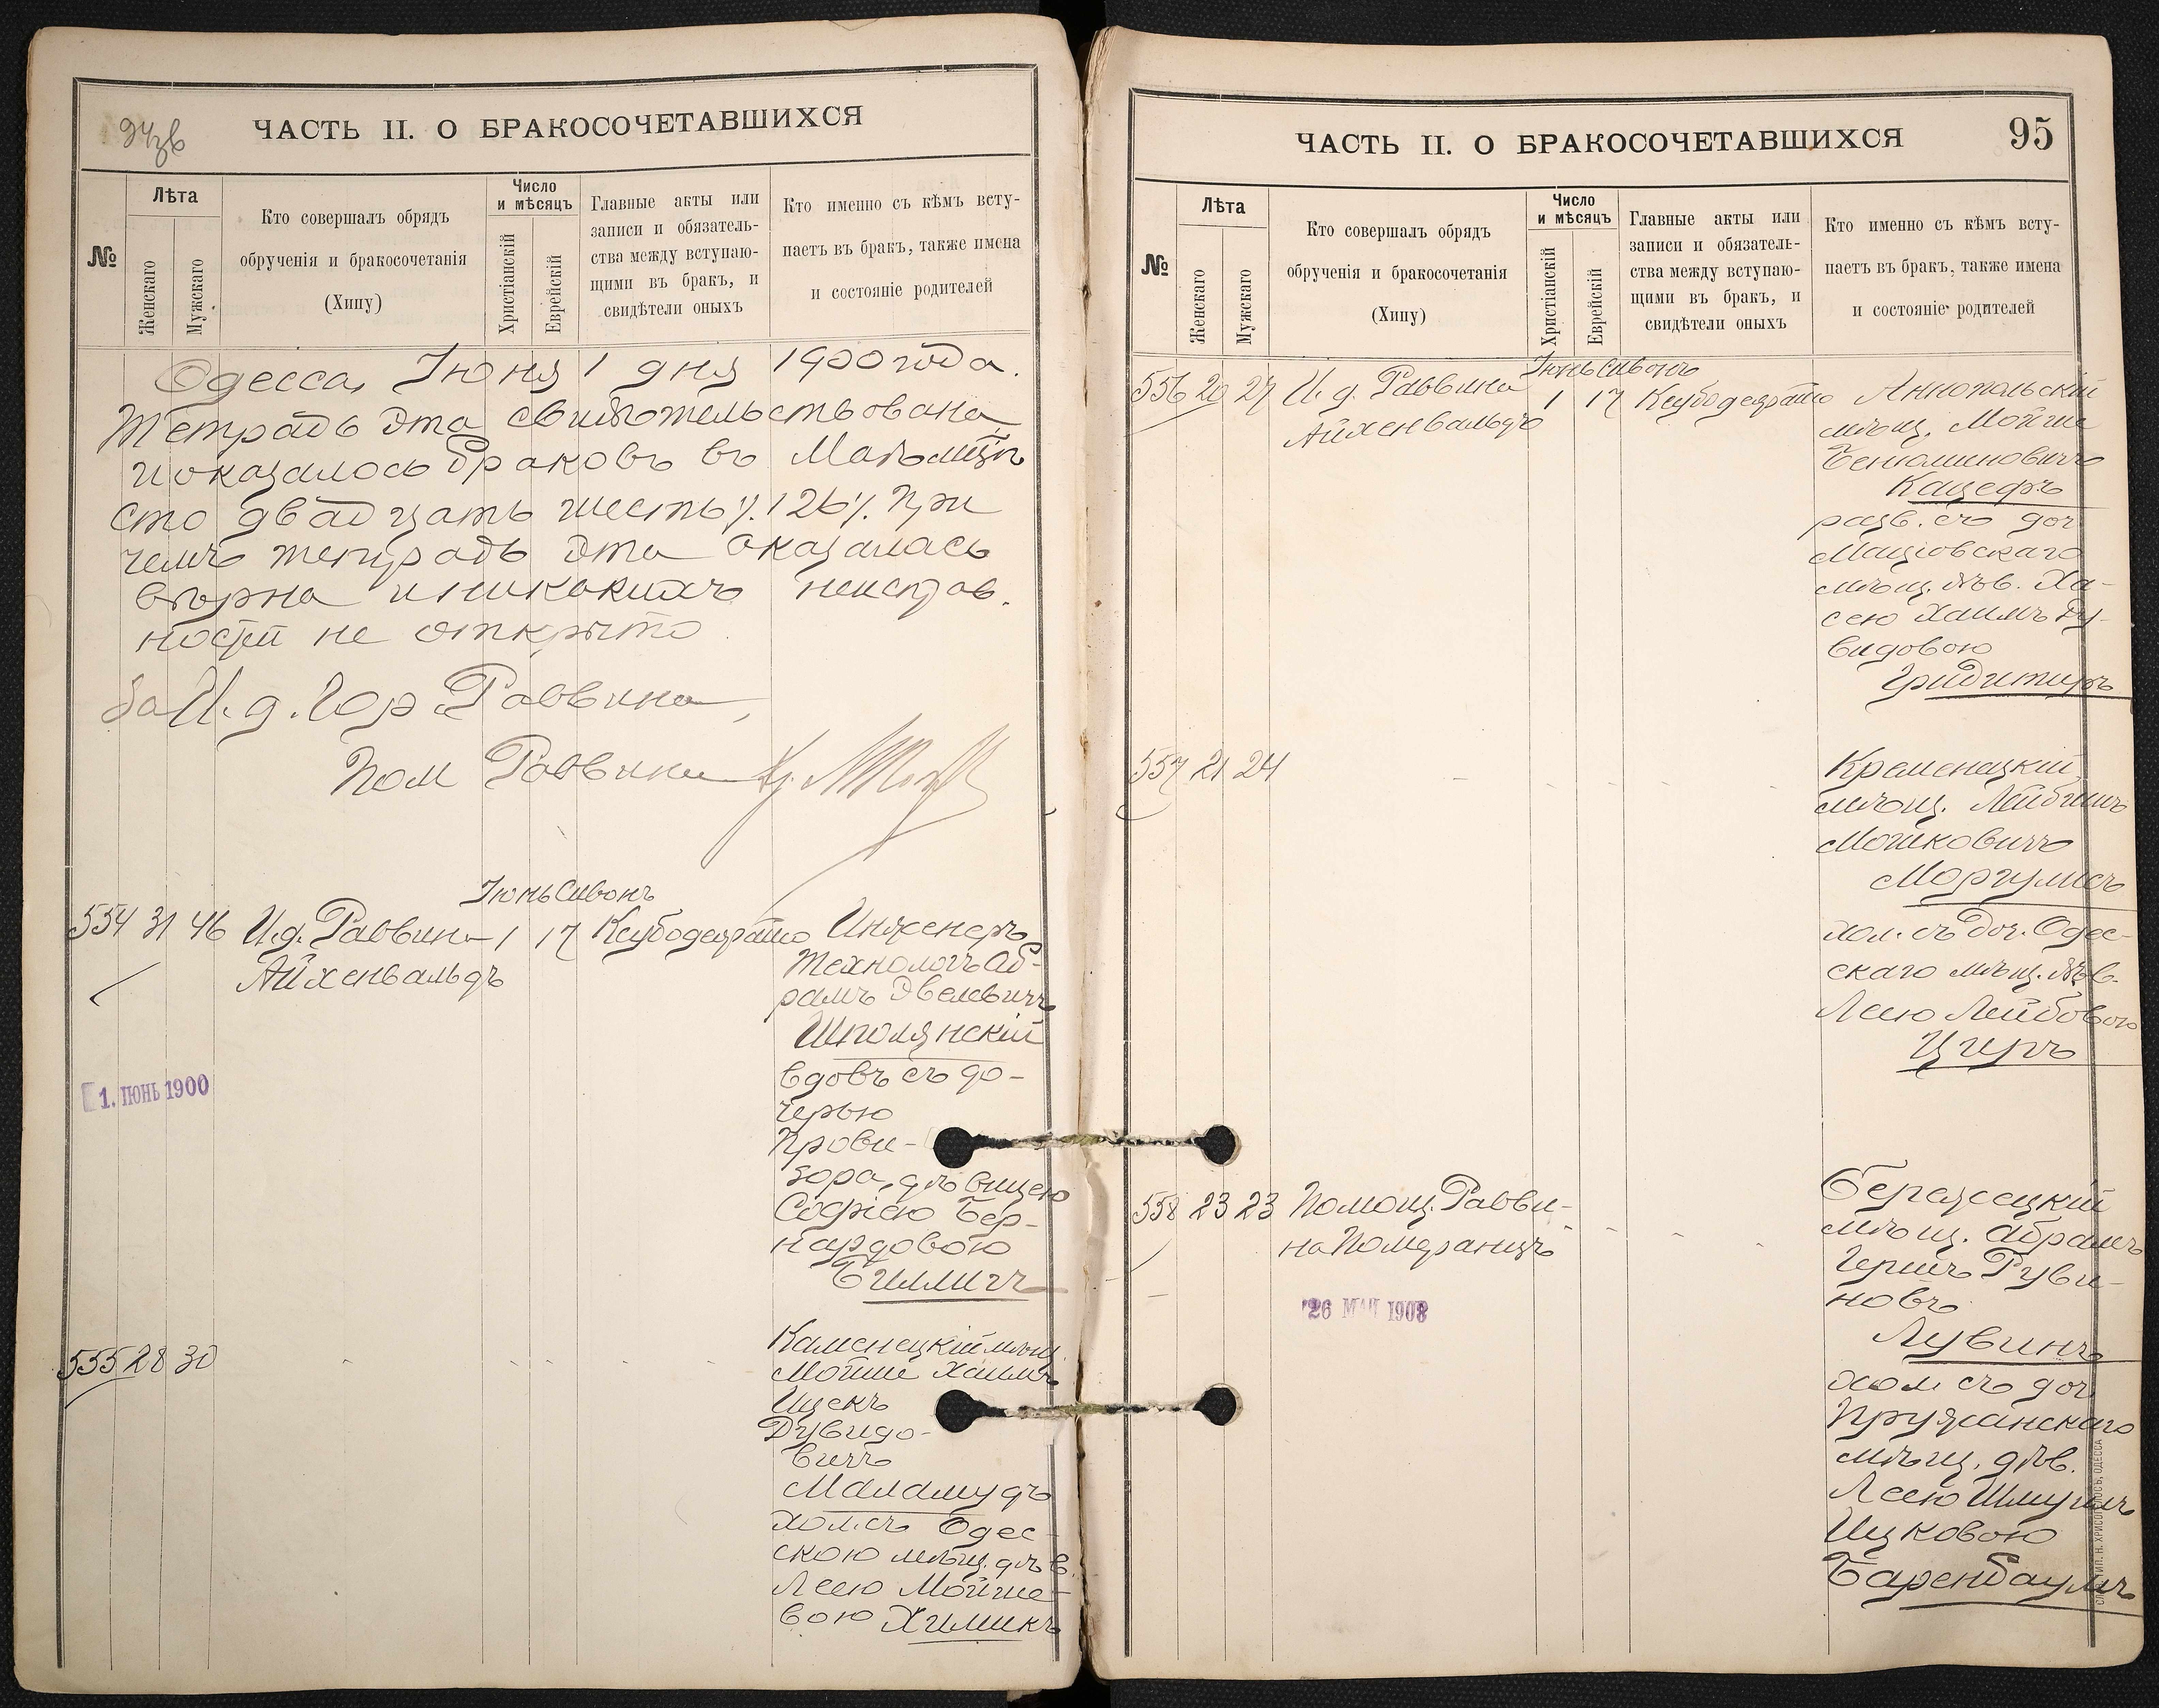 94 зв
ЧАСТЬ II. О БРАКОСОЧЕТАВШИХСЯ
№
Лѣта
Женскаго
Мужскаго
Кто совершалъ обрядъ
обрученія и бракосочетанія
(Хипу)
Число
и мѣсяцъ
Христіанскій
Еврейскій
Главные акты или
записи и обязатель-
ства между вступаю-
щими въ бракъ, и
свидѣтели оныхъ
Кто именно съ кѣмъ всту-
паетъ въ бракъ, также имена
и состояніе родителей
Одесса, Іюня 1 дня 1900 года.
Тетрадь эта свидѣтельствована
и оказалось браковъ въ Маѣ мѣцѣ
сто двадцать шесть /.126/. При
чемъ тетрадь эта оказалась
вѣрна и никакихъ неисправ.
ностей не открыто
За И. д. Гор Раввина,
Пом Раввина
Іюнь Сивонъ
554 31 46 И.д. Раввина 1 17 Ксубодеурайто Инженеръ
Айхенвальдъ
Технологъ Аб-
рамъ Эвелевичъ
Шполянскій
вдовъ съ до-
черью
Прови-
зора, дѣвицею
Софіею Бер-
нардовою
Биллигъ
1. ІЮНЬ 1900
555 28 30
Каменецкій мѣщ.
Мойше Хаимъ
Ицекъ
Дувидо-
вичъ
Маламудъ
хол. съ Одес-
скою мѣщ. дѣв.
Леею Мойше-
вою Химикъ
ЧАСТЬ II. О БРАКОСОЧЕТАВШИХСЯ
95
№
Лѣта
Женскаго
Мужскаго
Кто совершалъ обрядъ
обрученія и бракосочетанія
(Хипу)
Число
и мѣсяцъ
Христіанскій
Еврейскій
Главные акты или
записи и обязатель-
ства между вступаю-
щими въ бракъ, и
свидѣтели оныхъ
Кто именно съ кѣмъ всту-
паетъ въ бракъ, также имена
и состояніе родителей
Іюнь Сивонъ
556 20 27 И. д. Раввина 1 17 Ксубодеурайто Аннопольскій
Айхенвальдъ
мѣщ. Мойше
Беніоминовичъ
Кацефъ
разв. съ доч
Маціовскаго
мѣщ. дѣв. Ха-
сею Хаимъ Ду-
видовою
557 21 24
Кременецкій
мѣщ. Лейбишъ
Мошковичъ
Моргулисъ
хол. съ доч. Одес-
скаго мѣщ. дѣв.
Леею Лейбовою
Циръ
558 23 23 Помощ. Равви-
на Померанцъ
26 МАЙ 1908
Берездецкій
мѣщ. Абрамъ
Гершъ Руви-
новъ
Лувинъ
хол. съ доч
Пружанскаго
мѣщ. дѣв.
Леею Шмуилъ
Ицковою
Баренбаумъ